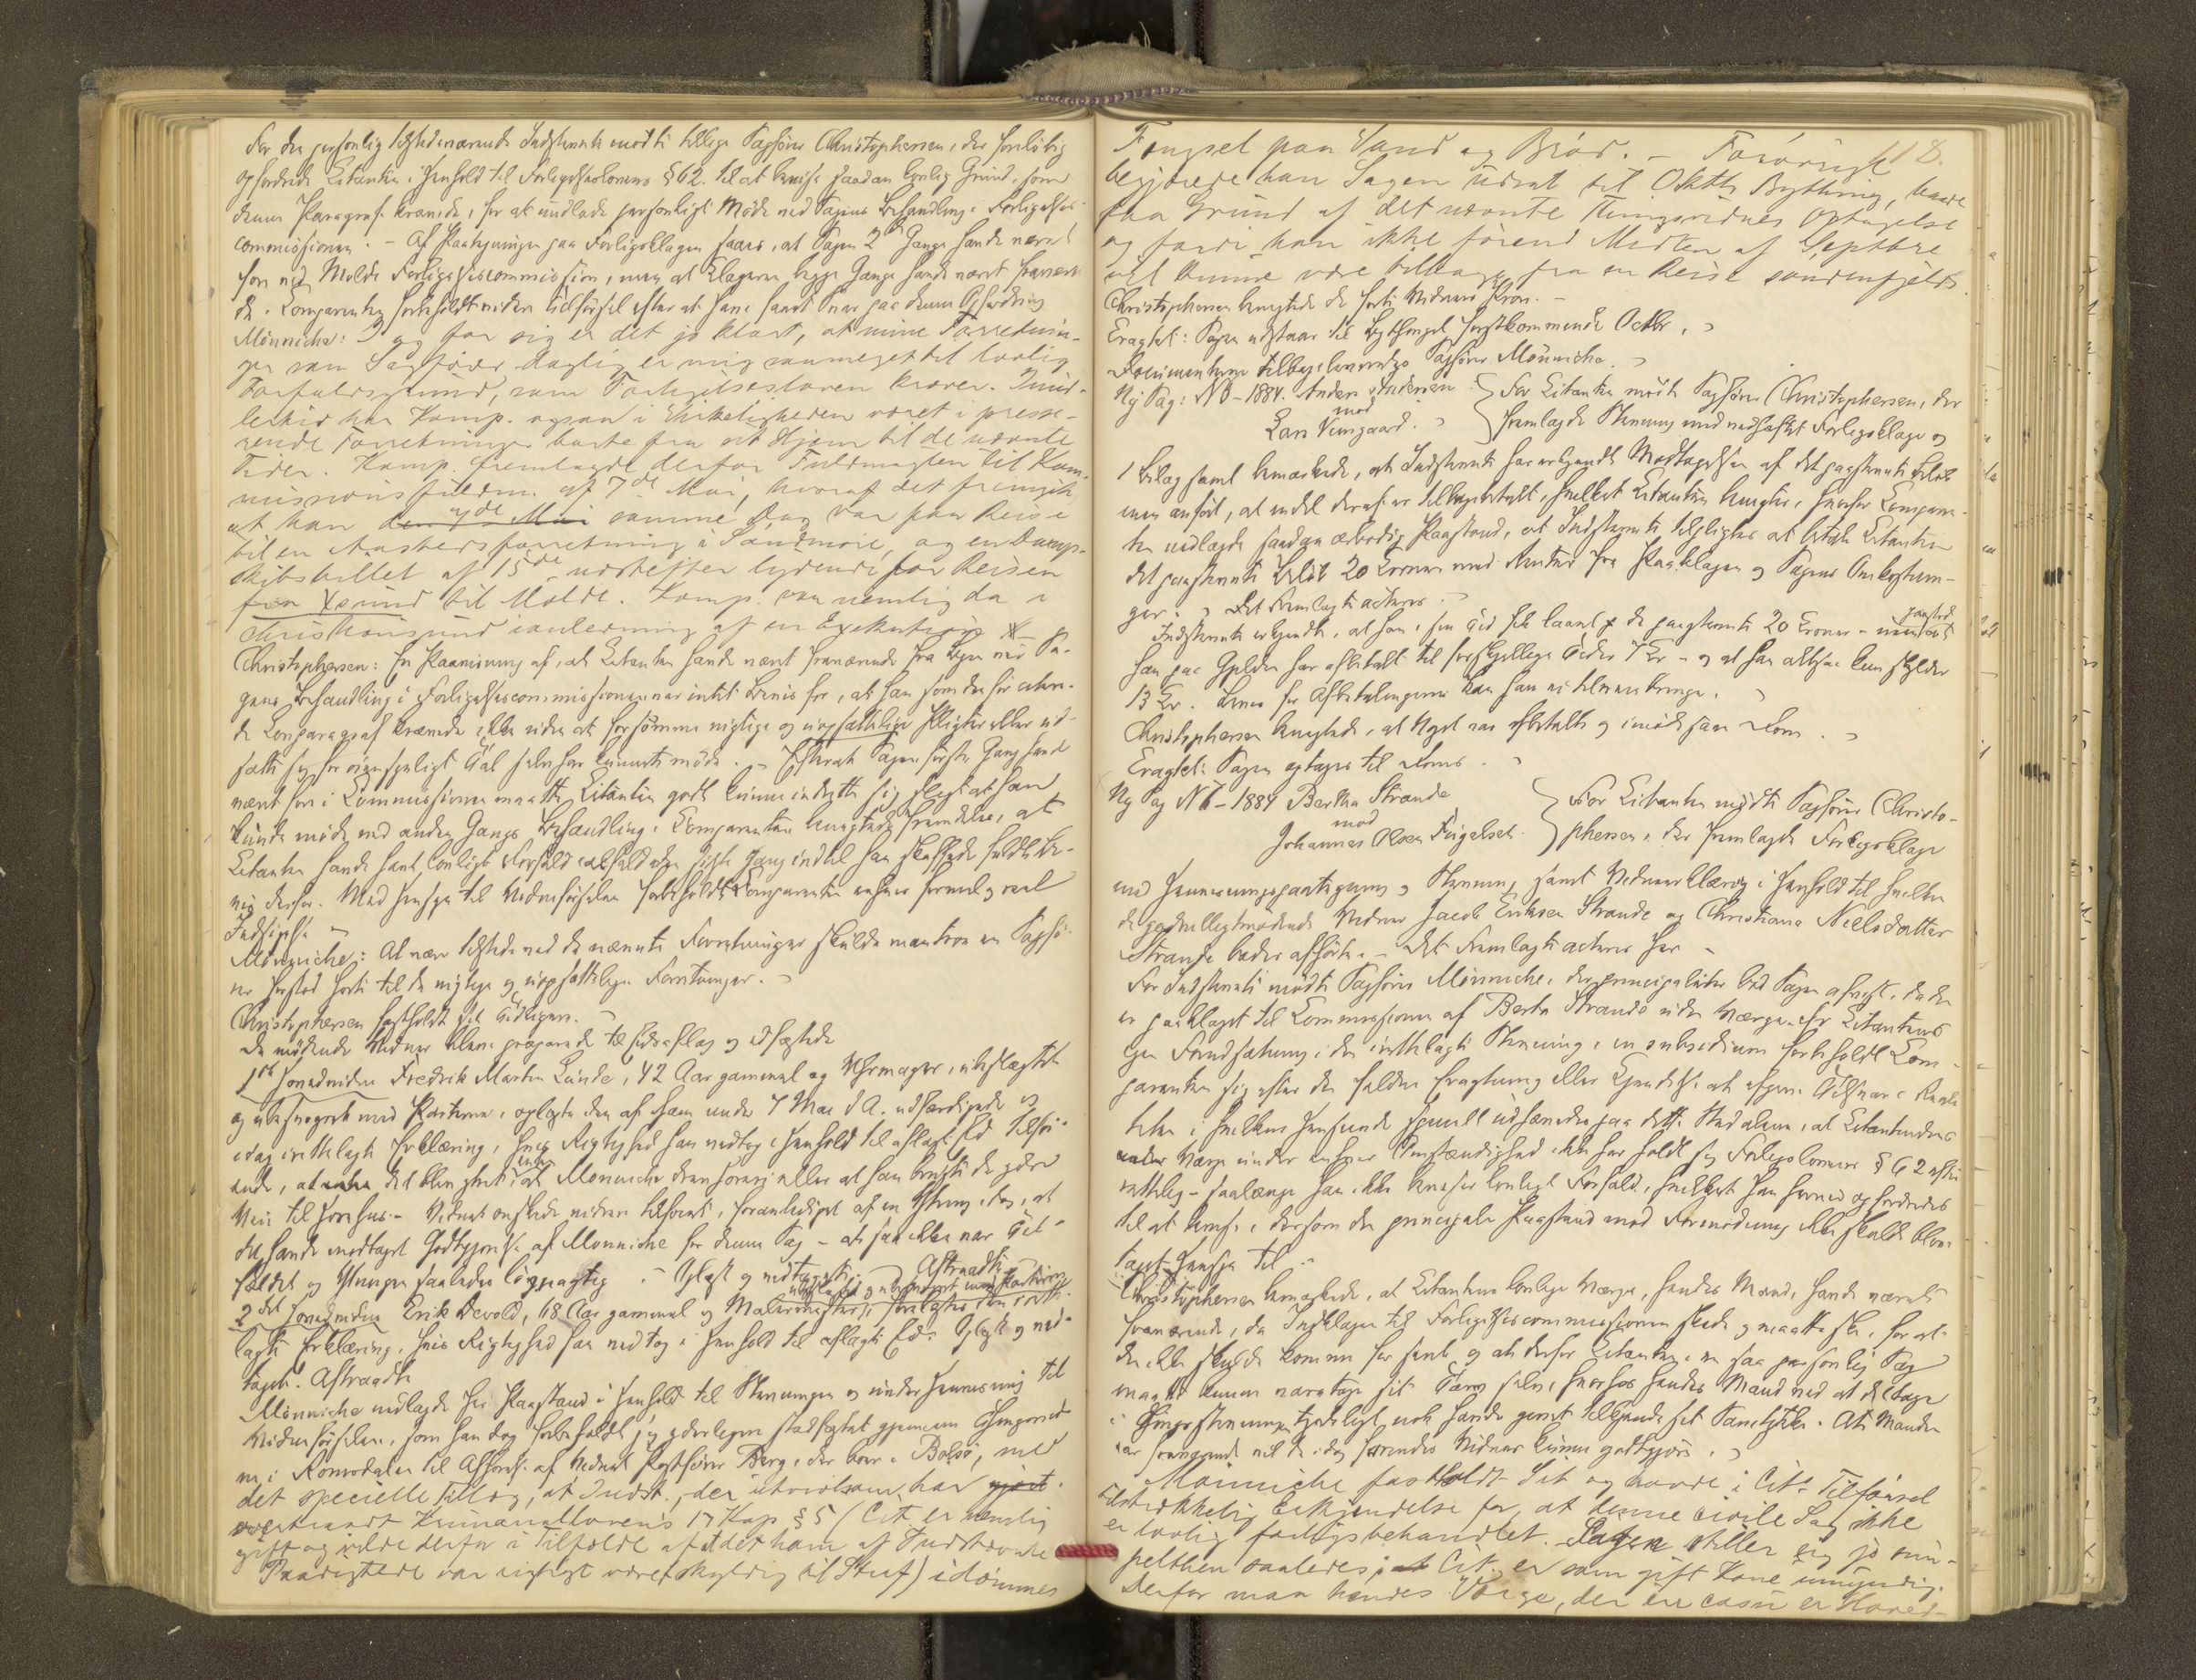 For den personlig tilstedeværende Indstevnte mødte tillige Sagfører Christophersen, der foreløbig
opfordrede Citanten i Henhold til Forligelseslovens § 62. til at bevise saadan lovlig Grund, som
denne Paragraf kræver, for at undlade personligt Møde ved Sagens Behandling i Forligelses-
commissionen. - Af Paategningen paa Forligsklagen sees, at Sagen 2 Gange havde været
fore ved Molde Forligelsescommission, men at Klageren begge Gange havde været fraværen-
de. Comparenten forbeholdt videre Tilførsel efter at have faaet Svar paa denne Opfordring
Mönniche: I og for sig er det jo klart, at mine Forretnin-
ger som Sagfører daglig er mig saameget til lovlig
Forfaldsgrund, som Forligelsesloven kræver. Imid-
lertid har Komp. ogsaa i Virkeligheden været i presse-
rende Forretninger borte fra sit Hjem til de nævnte
Tider. Komp. fremlagde derfor Fuldmagten til Kom-
missionsfuldm. af 7de Mai, hvoraf det fremgik
at han den 7de Mai samme Dag var paa Reise
til en Aastedsforretning i Søndmøre, og en Damp-
skibsbillet af 15de, udstedt lydende for Reisen
fra Xsund til Molde. Komp. var nemlig da i
Christiansund i anledning af en Exekution
Christophersen: En Paavisning af, at Citanten havde været fraværende fra Byen ved Sa-
gens Behandling i Forligelsescommissionen var intet Bevis for, at han som den
de Lovparagraf kræver ikke uden at forsømme vigtige og uopsættelige Pligter eller ud-
sætte sig for øiensynligt Tab selv har kunnet møde. - Efterat Sagen første Gang havde
været fore i Commissionen maatte Citanten godt kunne indrette sig slig at han
kunde møde ved anden Gangs Behandling. Comparenten benegtede fremdeles, at
Citanten havde havt lovligt Forfald
nis derfor. Med Hensyn til Vidneførselen forbeholdt Comparenten enhver formel og reel
Indsigelse
Mönniche: At være tilstede ved de nævnte Forretninger skulde man tro en Sagfø-
rer henhørte til de vigtige og uopsættelige Forretninger.
Christophersen fastholdt sit Tidligere.
De mødende Vidner bleve præparerede til Edsaflæg og edfæstede
1ste Hovedvidne Fredrik Martin Lunde, 42 Aar gammel og Uhrmager, ubeslægtet
og ubesvogret med Parterne, oplæste den af ham under 7 Mai d.A. udfærdigede og
idag irettelagte Erklæring, hvis Rigtighed han vedtog i Henhold til aflagt Ed Tilføi-
ende, at det blev ytret enten at Mönniche drev Horeri eller at han brugte de gdøre
Veie til Horehus. - Vidnet ønskede videre tilføiet, foranlediget af en Ytring, at
det havde modtaget Godtgjørelse af Mönniche for denne Sag - at saa ikke var Til-
fældet og Ytringen saaledes løgnagtig. - Oplæst og vedtaget. Aftraadte
2det Hovedvidne Erik Devold, 68 Aar gammel og Malermester, ubeslægtet og ubesvogret med Parterne, forelagdes den irette-
lagte Erklæring, hvis Rigtighed han vedtog i Henhold til aflagte Ed. Oplæst og ved-
taget. Aftraadte
Mönniche nedlagde her Paastand i Henhold til Stevningen og under Henvisning til
Vidneførselen, som han dog forbeholdt sig yderligere stadfæstet gjennem Thingsvid-
ne i Romsdalen til Afhørelse af Vidnet Postfører Berg, der bor i Bolsø, med
det specielle Tillæg, at Indst., der utvivlsom har gjort
overtraadt Kriminallovens 17 Kap § 5 (Cit. er nemlig
gift og vilde derfor i Tilfælde af at det ham af Indstevnte
Paasigtede var rigtigt været skyldig til Straf) idømmes
118.
Fængsel paa Vand og Brød. - Forøvrigt
begjærede han Sagen udsat til Oktbr. Bything, baade
paa Grund af det nævnte Thingsvidnes Optagelse
og fordi han ikke førend Midten af Septbre
vil kunne være tilbage fra en Reise søndenfjelds.
Christophersen benegtede de førte Vidners Prov. -
Eragtet: Sagen udstaar til Bythinget førstkommende Octbr.
Documenterne tilbageleveredes Sagfører Mönniche.
Ny Sag: N 6 - 1884. Anders Andersen
mod
Lars Vemgaard.
For Citanten mødte Sagfører Christophersen, der
fremlagde Stevning med vedheftet Forligsklage og
1 Bilag samt bemærkede, at Indstevnte har erkjendt Modtagelsen af det paastevnte Beløb
men anført, at endel deraf er tilbagebetalt, hvilket Citanten benegter, hvorfor Comparen-
ten nedlagde saadan ærbødig Paastand, at Indstevnte tilpligtes at betale Citanten
det paastevnte Beløb 20 Kroner med Renter fra Paaklagen og Sagens Omkostnin-
ger. Det Fremlagte acteres
Indstevnte erkjendte, at han i sin Tid fik laant de paastevnte 20 Kroner - paastod
han paa Gjælden har afbetalt til forskjellige Tider 7 Kr - og at han altsaa kun skylder
13 Kr. Bevis for Afbetalingerne kan han ei tilveiebringe.
Christophersen benegtede, at Noget var afbetalt og imødesaa Dom.
Eragtet: Sagen optages til Doms.
Ny Sag N 7 - 1884 Bertha Strande
mod
Johannes Olsen Fugelset.
For Citanten mødte Sagfører Christo-
phersen, der fremlagde Forligsklage
med Henvisningspaategning, Stevning, samt Vidneerklæring i Henhold til hvilken
de godvilligtmødende Vidner Jacob Eriksen Strande og Christiana Nielsdatter
Strande bedes afhørte. - Det Fremlagte acteres her
For Indstevnte mødte Sagfører Mönniche, der principaliter bad Sagen afvist, da den
er paaklaget til Commissionen af Berta Strande uden Værge. efr Citantens
egen Fremsætning i den irettelagte Stevning, in subsidium forbeholdt Com-
parenten sig efter den faldne Eragtning eller Kjendelse at afgive Tilsvar i Reali-
teten i hvilken Henseende specielt udhævedes paa dette Sted alene, at Citantindens
Værge under enhver Omstændighed ikke har holdt sig Forligslovens § 62 efter-
rettelig - saalænge han ikke beviser lovligt Forfald, hvilket han herved opfordredes
til at bevise, dersom den principale Paastand mod Formodning ikke skulde blive
taget Hensyn til.
Christophersen bemærkede, at Citantens lovlige Værge, hendes Mand, havde været
fraværende, da Indklagen til Forligelsescommissionen skede og maatte ske, for at
den ikke skulde komme for sent og at derfor Citanten, i en saa personlig Sag
maatte kunne varetage sit Tarv selv, hvorhos hendes Mand ved at deltage
i Thingsstevningen tydeligt nok havde givet tilkjende sit Samtykke. At Manden
var fraværende vil de idag førendes Vidner kunne godtgjøre.
Mönniche fastholdt Sit og havde i Cit's Tilførsel
tilstrækkelig Erkjendelse for, at denne civile Sag ikke
er lovlig forligsbehandlet. Sagen stiller sig jo sim-
pelthen saaledes: Cit. er som gift Kone umyndig.
Derfor maa hendes Værge, der in casu er Hoved-